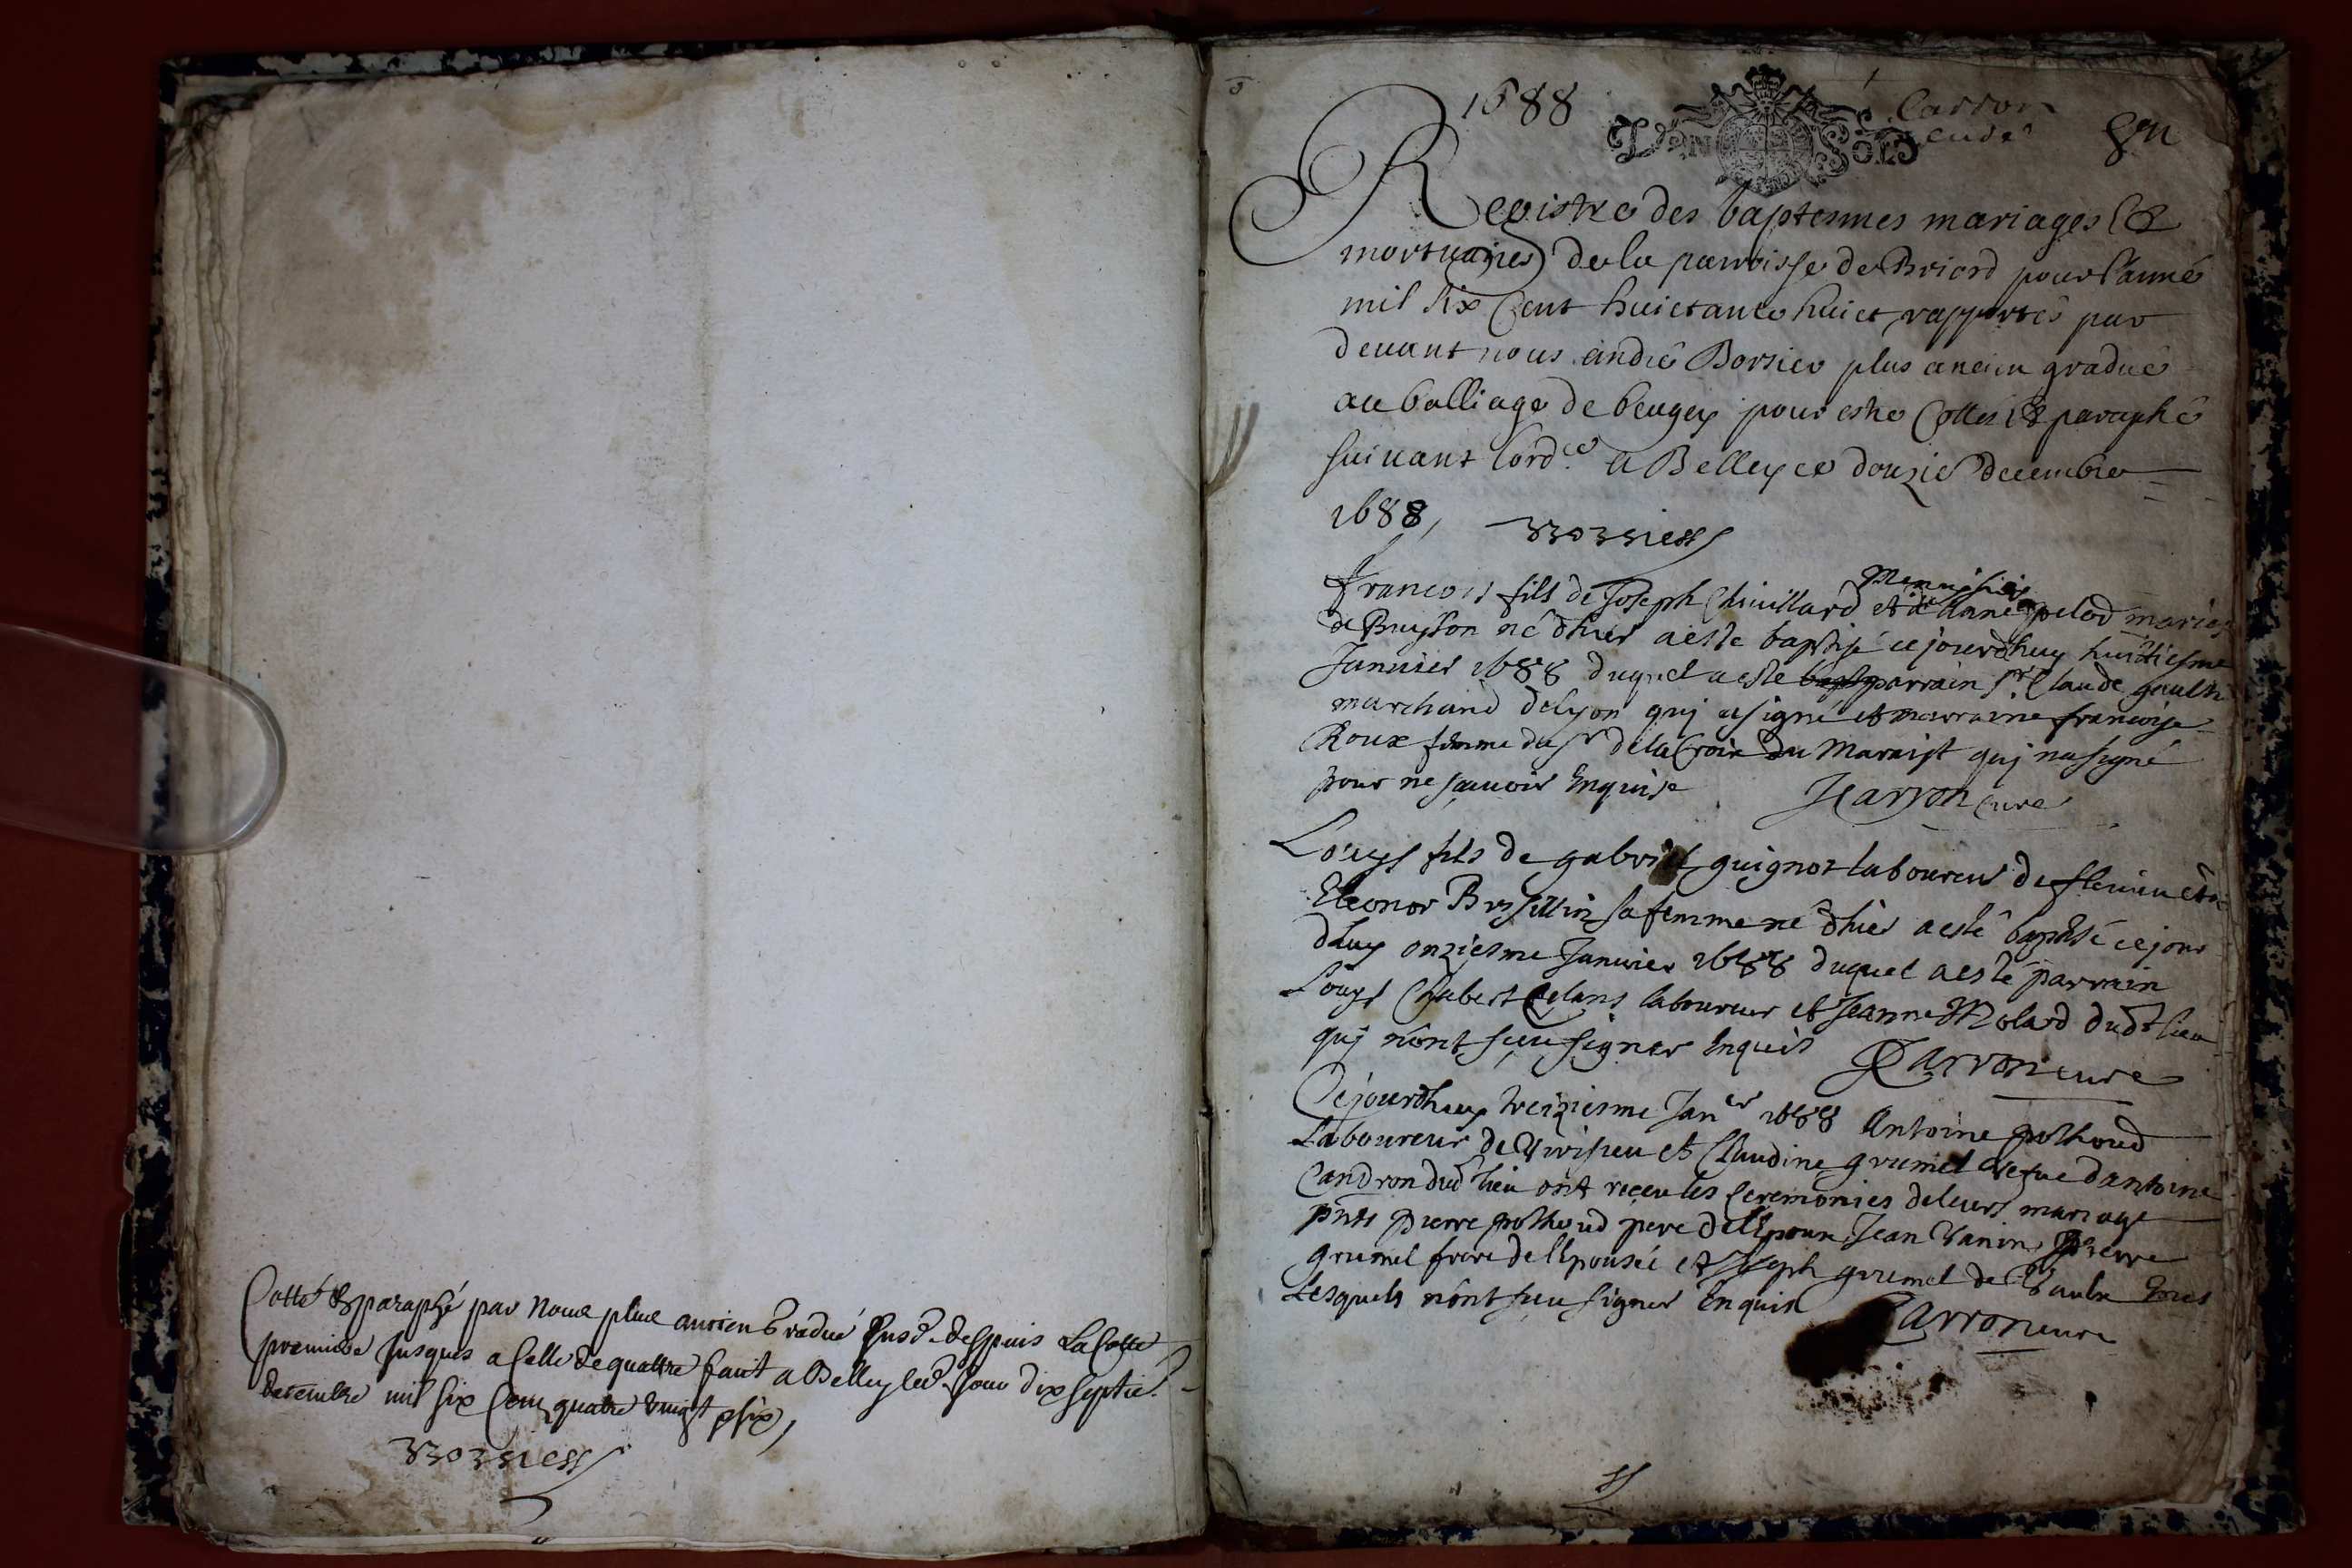 Cotté & paraphé par Nous plus ancien Gradué susd. despuis La Cotte
premiere Jusques a Celle de quattre fait a Belley led. Jour dix septie.
decembre mil six Cens quatre vingt & six,
Borsier
1688
Carron
curé
VN SOLS
Registre des baptesmes mariages &
mortuaires de la parroisse de Briord pour l'anné
mil six Cent huictante huict rapporté par
devant nous andré Borsier plus ancien gradué
au balliage de beugey pour estre Cotté & paraphé
suivant lord.ce a Belley ce douzie decembre
1688, Borsier
Menuisier
francois fils de Joseph Chuillard et d'anne pelod mariés
de Buysson né d'hier a esté baptisé ce jourdhuy huictiesme
Januier 1688 duquel a esté parrain sr. Claude gault
marchand de lyon quj a signé et marraine francoise
Roux femme du sr de la Croix du Maraist quj na signé
pour ne scauoir Enquise JCarron curé
Louys fils de gabriel guignot laboureur de flevieu et
Eleonor Brissillin sa femme né d'hier a esté baptisé ce jour
dhuy onziesme Januier 1688 duquel a esté parrain
Louys Chabert laboureur et Jeanne Molard dudt lieu
quj n'ont sceu signer Enquis JCarron curé
Cejourdhuy treiziesme Janer 1688 Antoine pothoud
Laboureur de Vvisieu et Claudine grumel vefue d'antoine
Candron dud lieu ont receu les Ceremonies de leurs mariage
pnts pierre pothoud pere de lEpoux, Jean Vanin, Pierre
grumel frere de lEpousée et Joseph grumel de Vaulx tous
Lesquels n'ont sceu signer Enquis Carron curé